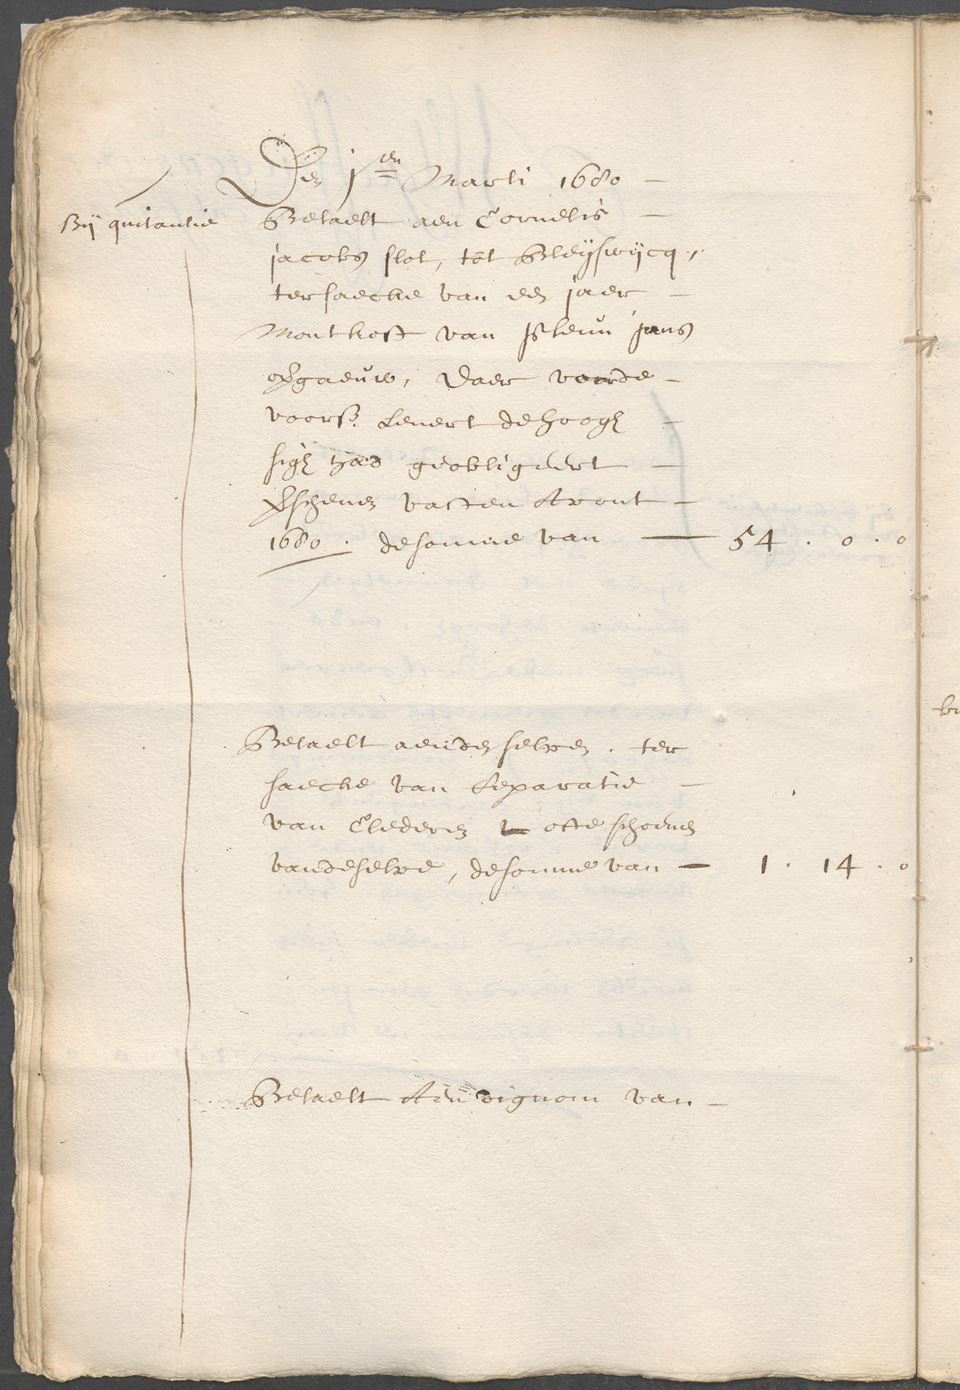 Den jen Marti 1680 –
Bij quitantie
Betaelt aen Cornelis –
jacobs slot, tot Bleijswijcq,
ter saecke van een jaer –
Montkost van jans
daer voorde –
voors. Leenert de hoogh –
sigh had geobligeert –
verschenen vasten Avont –
1680. de somme van — 54 . 0 . 0
Betaelt aenden selven . ter
saecke van Reparatie –
van Clederen ofte schoenen
vandeselve, desomme van — 1 . 14 . 0
Betaelt Aen van –